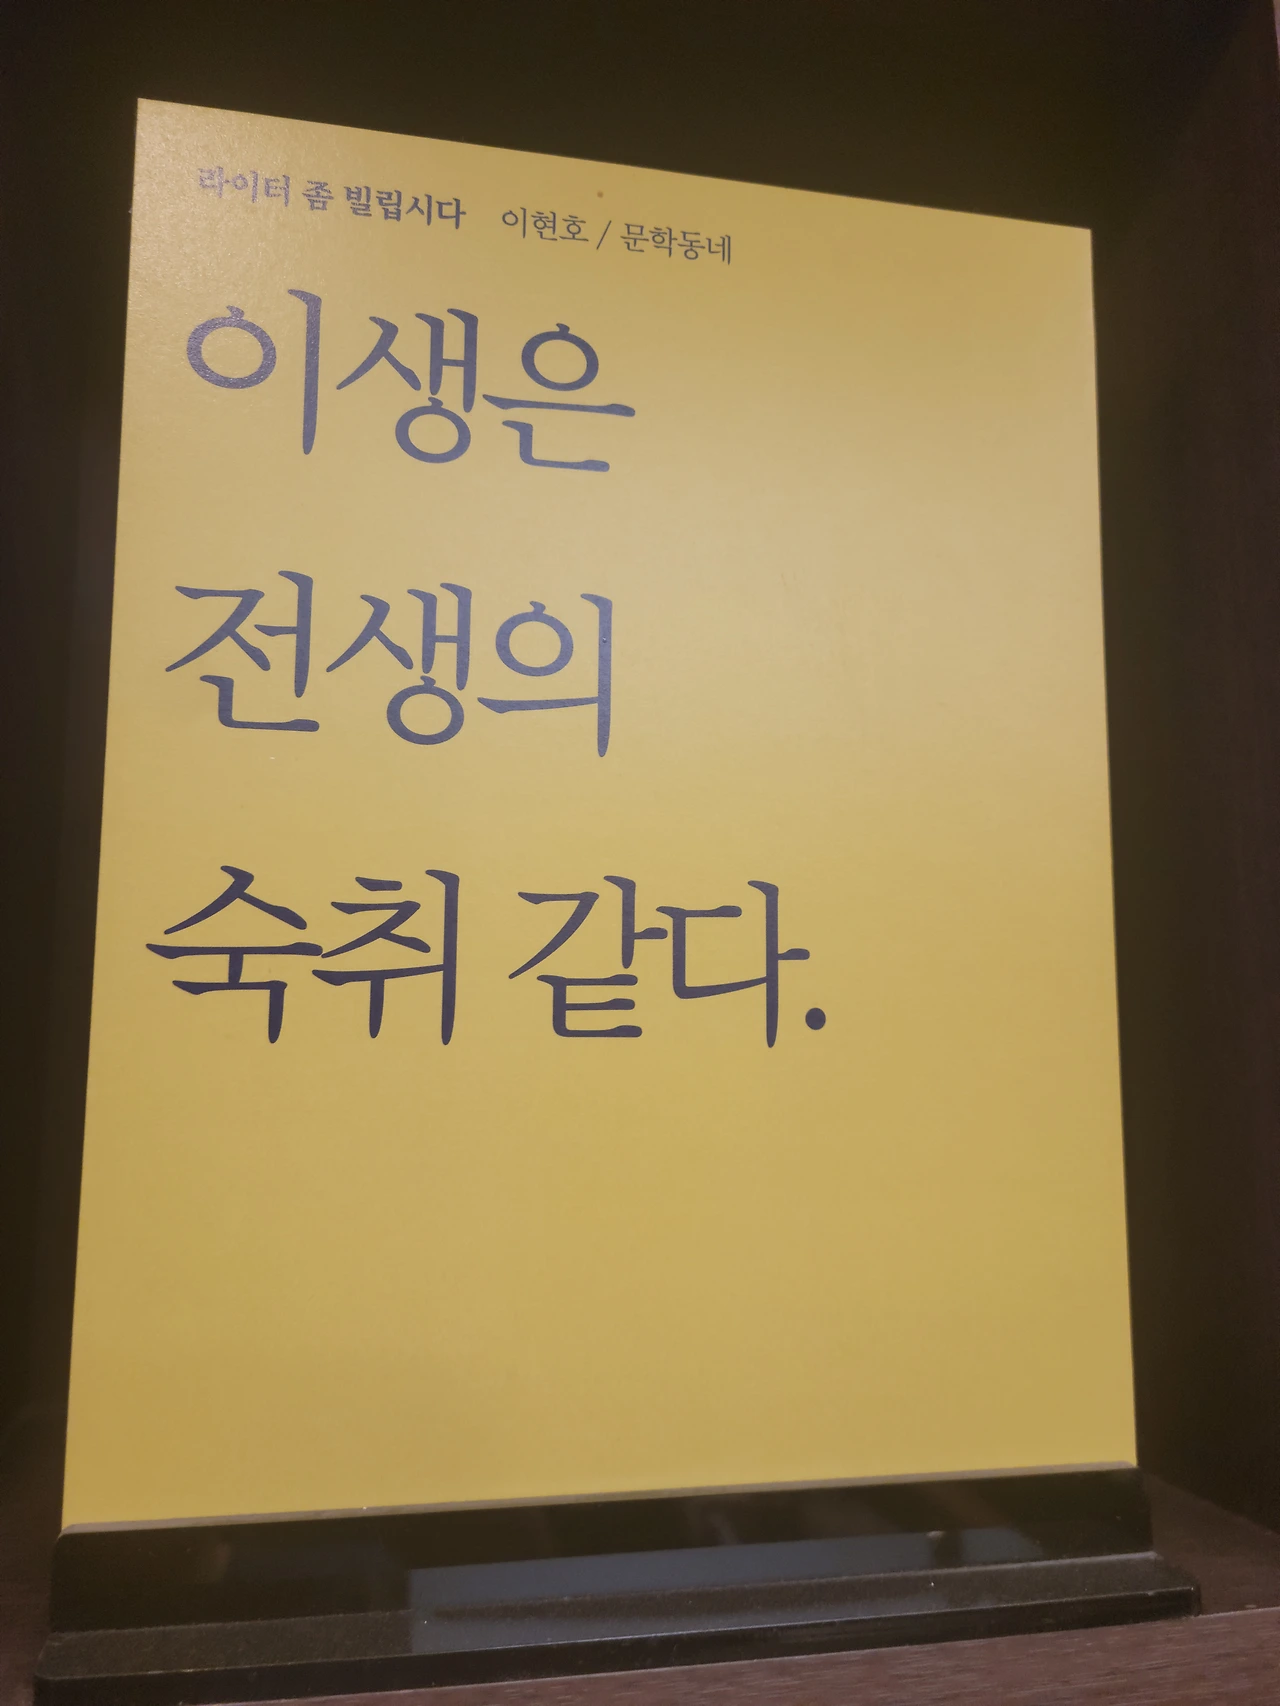 라이터 좀 빌립시다 이현호 / 문학동네
이생은
전생의
숙취 같다.